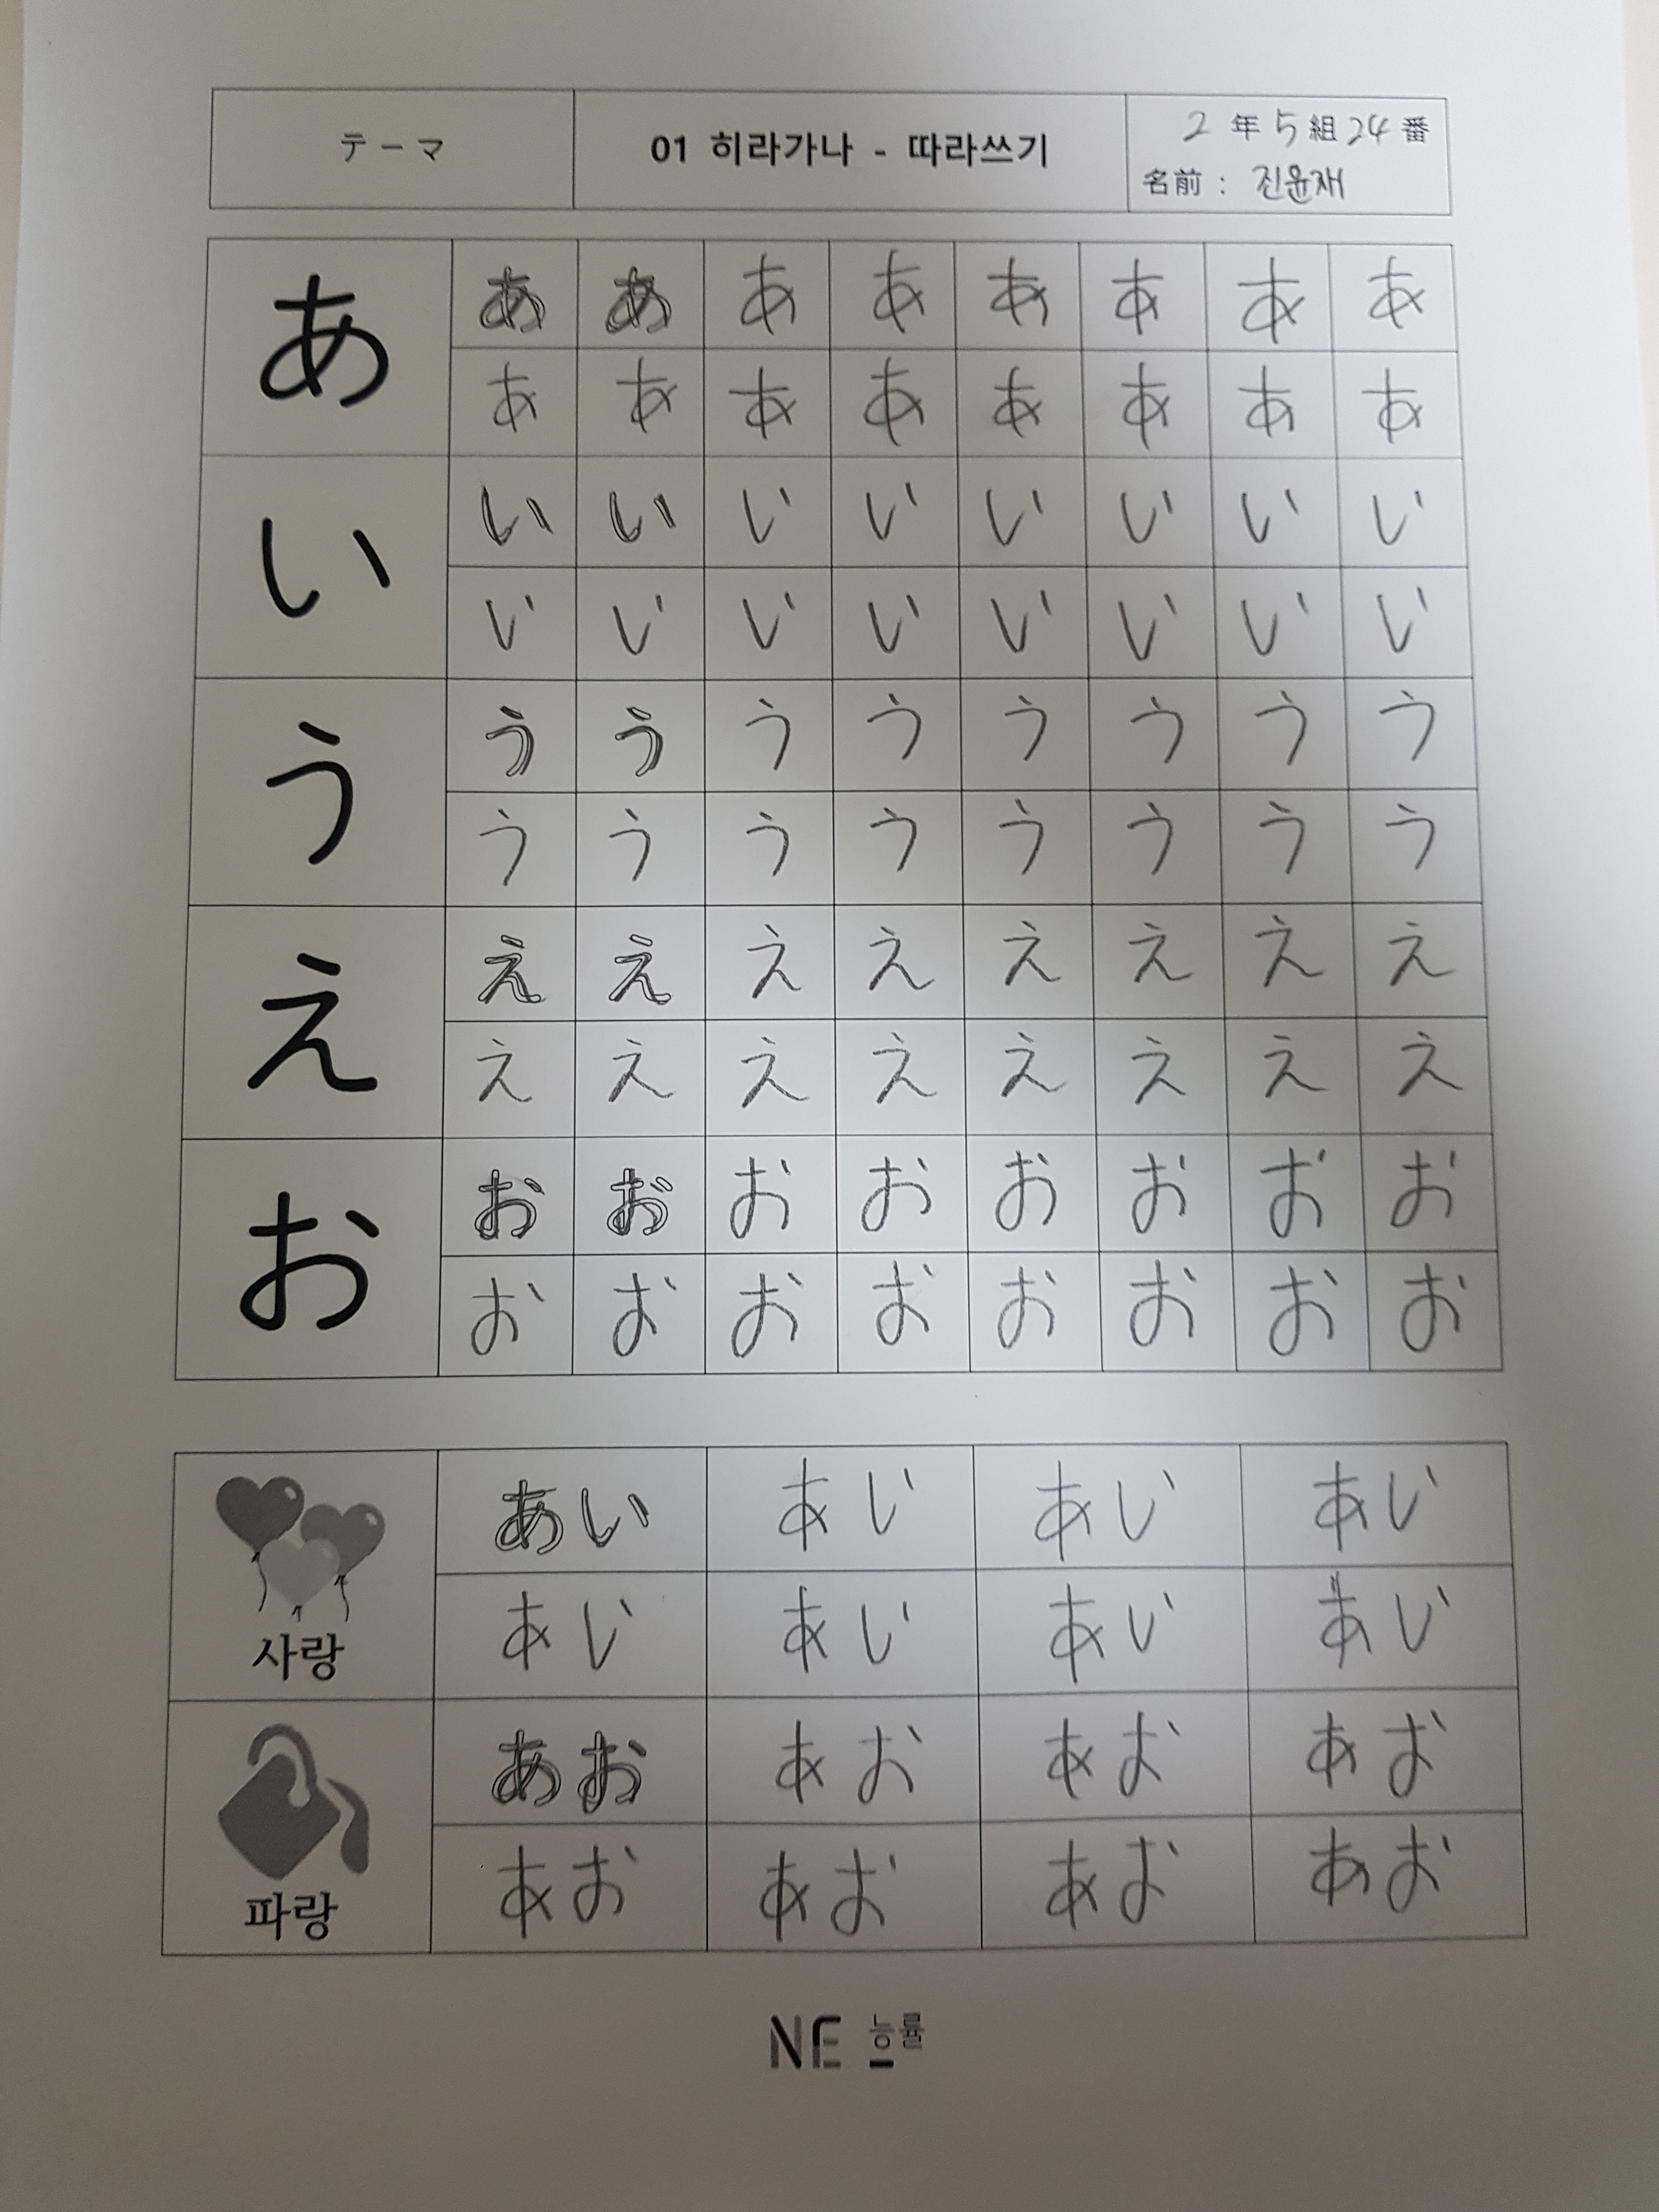 テーマ
01 히라가나 - 따라쓰기
2 年 5 組 24 番
名前 : 진윤재
あ
あ あ あ あ あ あ あ あ
あ あ あ あ あ あ あ あ
い
い い い い い い い い
い い い い い い い い
う
う う う う う う う う
う う う う う う う う
え
え え え え え え え え
え え え え え え え え
お
お お お お お お お お
お お お お お お お お
사랑
あい あい あい あい
あい あい あい あい
파랑
あお あお あお あお
あお あお あお あお
NE 능률